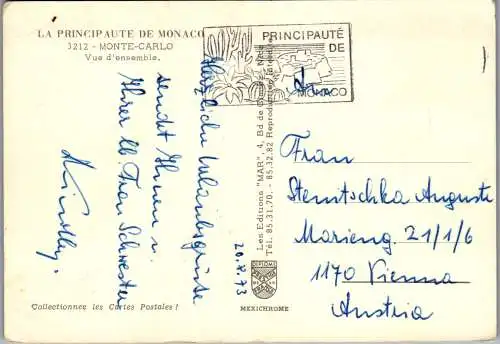 LA PRINCIPAUTE DE MONACO
3212 - MONTE-CARLO
Vue d'ensemble.
PRINCIPAUTÉ
DE
MONACO
Herzliche Urlaubsgrüße
sendet Ihnen u.
Ihrer lb. Frau Schwester
20.8.73
Les Editions "MAR", 4, Bd de
Tél. 85.31.70. - 85.32.82 Reproduction
Frau
Stenitschka Auguste
Marieng. 21/1/6
1170 Vienna
Austria
DIPLOME
PRAGUE
MEXICHROME
Collectionnez les Cartes Postales !